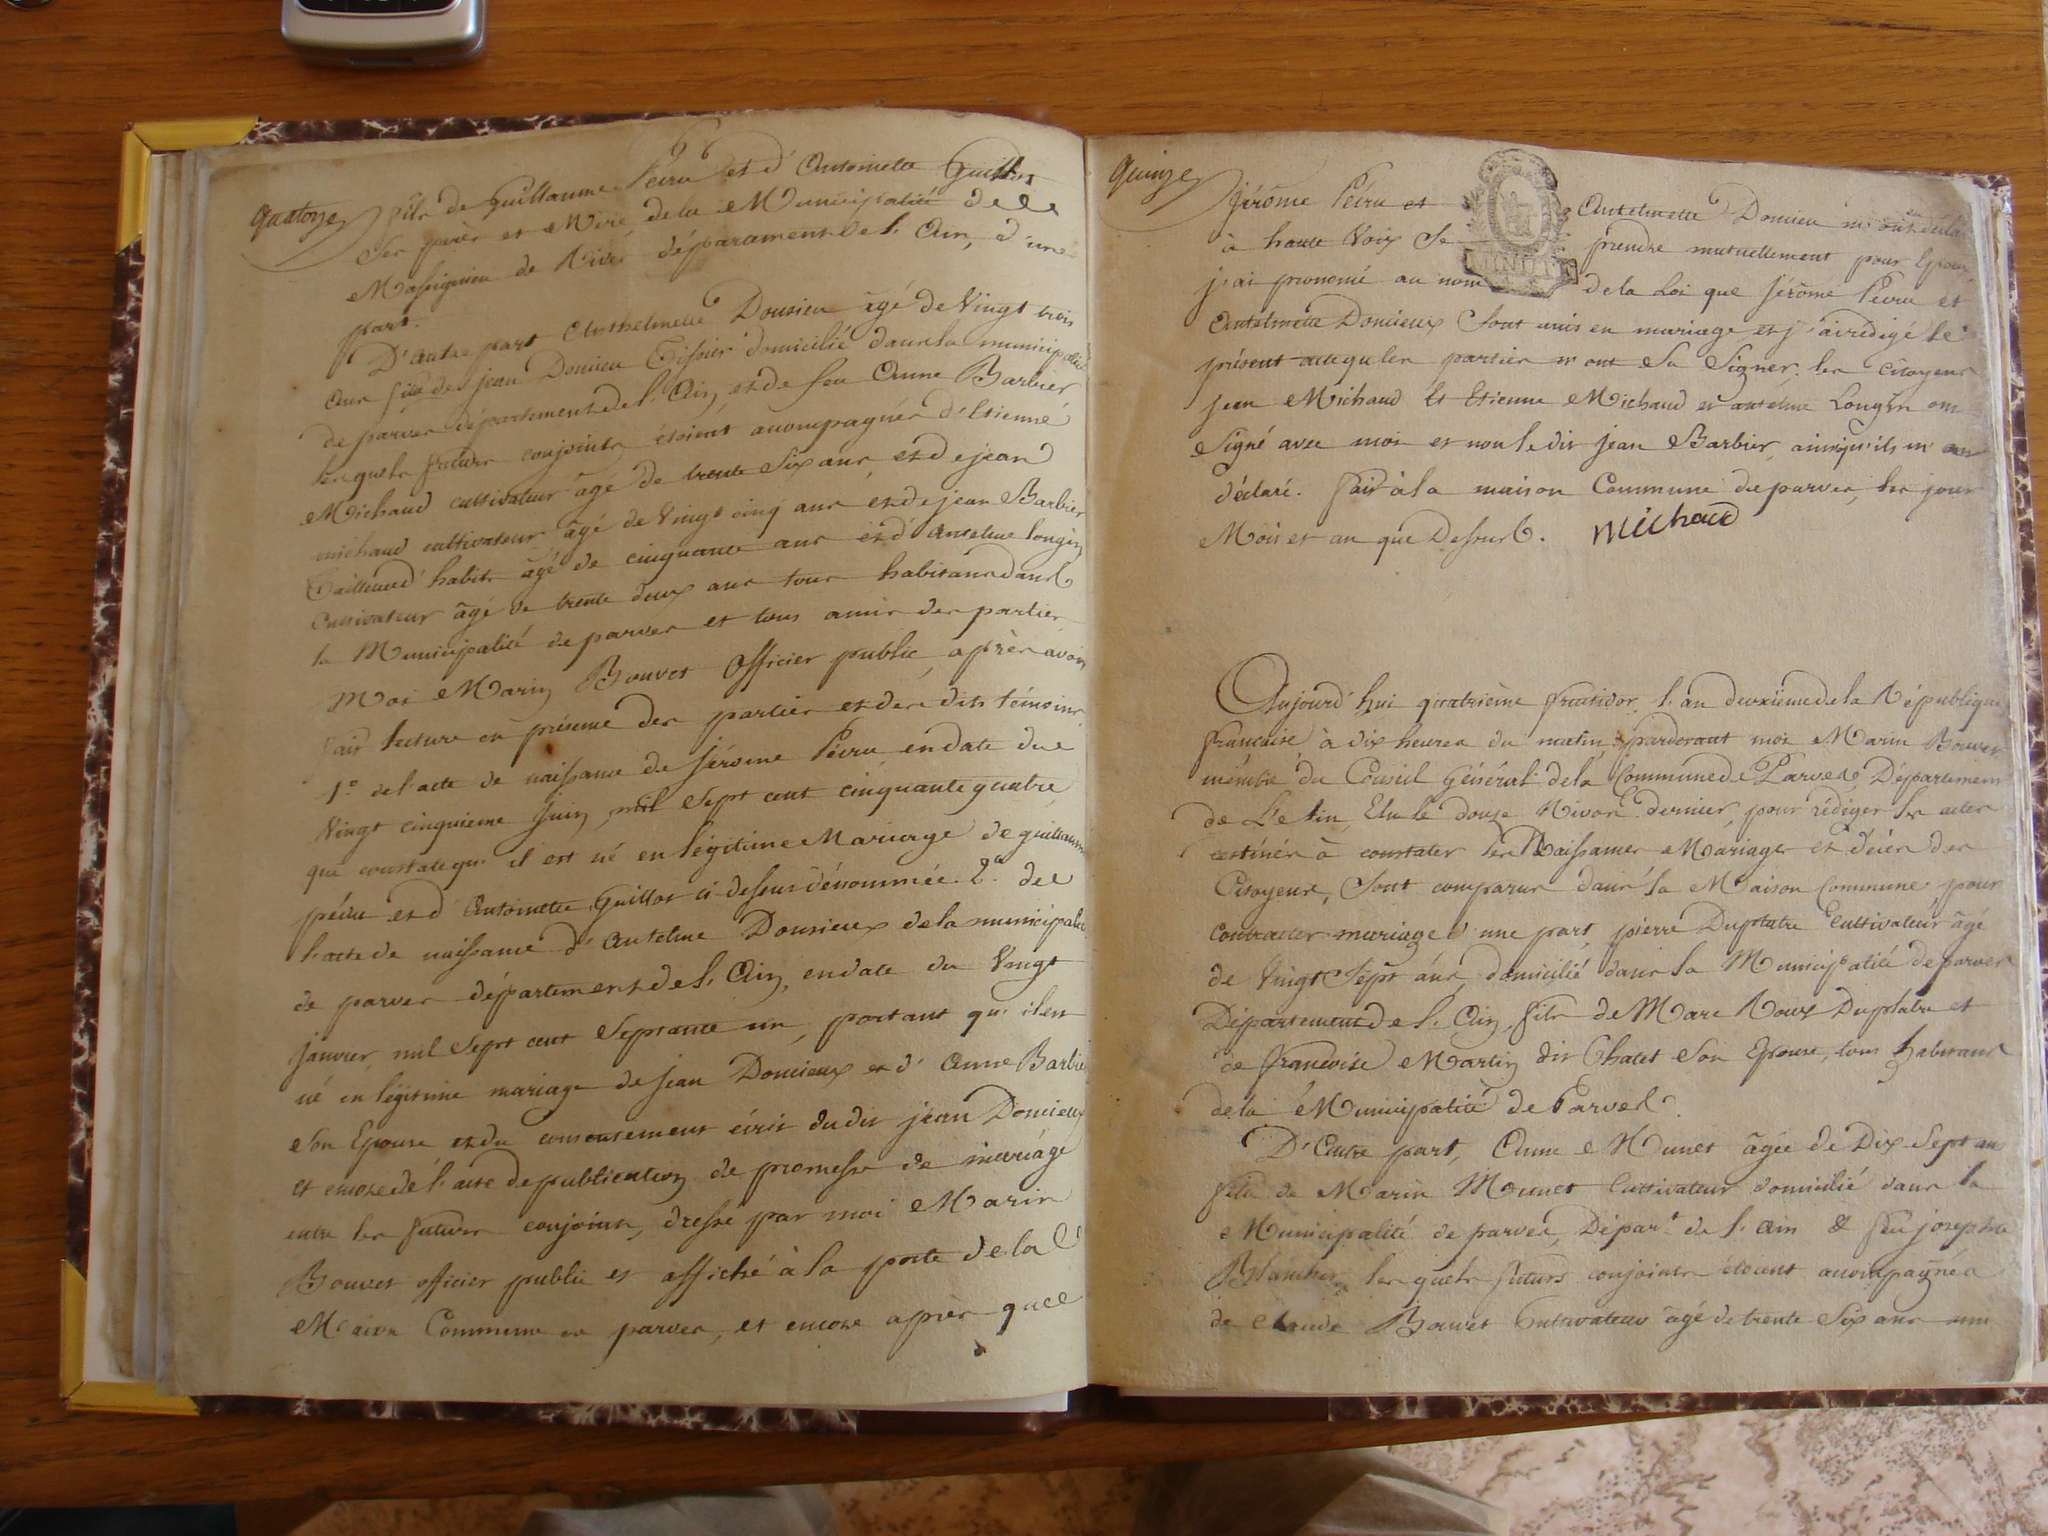 quatorze
fils de Guillaume Pécru et d'Antoinette Guillot
ses père et Mère, de la Municipalité de
Massignieu de Rives département de l'Ain, d'une
part.
D'autre part Anthelmette Doucieu âgé de Vingt trois
ans fille de jean Doucieu Tissier domicilié dans la municipalité
de parves département de l'Ain, et de feu Anne Barbier
lesquels futurs conjoints étoient accompagnés d'Etienne
Michaud cultivateur âgé de trente Six ans, et de jean
michaud cultivateur âgé de Vingt cinq ans et de jean Barbier
Tailleur d'habits âgé de cinquante ans et d'Antelme longin
Cultivateur âgé de trente deux ans tous habitans dans
la Municipalité de parves et tous amis des parties
Moi Marin Bouvet Officier public, après avoir
fait lecture en présence des parties et des dits témoins
1º de l'acte de naissance de Jérome Pécru, en date du
Vingt cinquieme Juin, mil Sept cent cinquante quatre
qui constate qu'il est né en légitime Mariage de guillaume
pécru et d'Antoinette Guillot ci dessus dénommée. 2º de
l'acte de naissance d'Antelme Doucieux de la municipalité
de parves département de l'Ain, en date du Vingt
janvier, mil Sept cent Septante un, portant qu'il est
né en légitime mariage de jean Doucieux et d'Anne Barbier
Son Epouse et du consentement écrit dudit jean Doucieux
et encore de l'acte de publication de promesse de mariage
entre les futurs conjoints, dressé par moi Marin
Bouvet officier public et affiché à la porte de la
Maison Commune de parves, et encore après que
quinze
Jérôme Pécru et Antelmette Doucieu m'ont déclaré
à haute Voix Se prendre mutuellement pour Epoux
j'ai prononcé au nom de la Loi que Jérôme Pécru et
Antelmette Doucieux Sont unis en mariage et j'ai rédigé le
présent acte que les parties n'ont Su Signer. les citoyens
jean Michaud et Etienne Michaud et antelme Longin ont
Signé avec moi et non le dit jean Barbier, ainsi qu'ils m'ont
déclaré. fait à la maison Commune de parves, les jour
Mois et an que Dessus. Michaud
Aujourd'hui quatrième fructidor l'an deuxième de la République
française à dix heures du matin, pardevant moi Marin Bouvet
membre du Conseil Général de la Commune de Parves, Département
de L'Ain, Elu le douze Nivose dernier, pour rédiger les actes
destinés à constater les Naissances Mariages et décès des
Citoyens, Sont comparus dans la Maison Commune, pour
contracter mariage d'une part, pierre Duplatre Cultivateur âgé
de Vingt Sept ans, domicilié dans la Municipalité de parves
Département de l'Ain, fils de Marc Roux Duplatre et
de françoise Martin dit Chatet Son Epouse, tous habitans
de la Municipalité de Parves.
D'Autre part, Anne Munet âgée de Dix Sept ans
fille de Marin Munet Cultivateur domicilié dans la
Municipalité de parves, Départ. de l'Ain & feu josephte
lesquels futurs conjoints étoient accompagnés
de Claude Bouvet Cultivateur âgé de trente Six ans